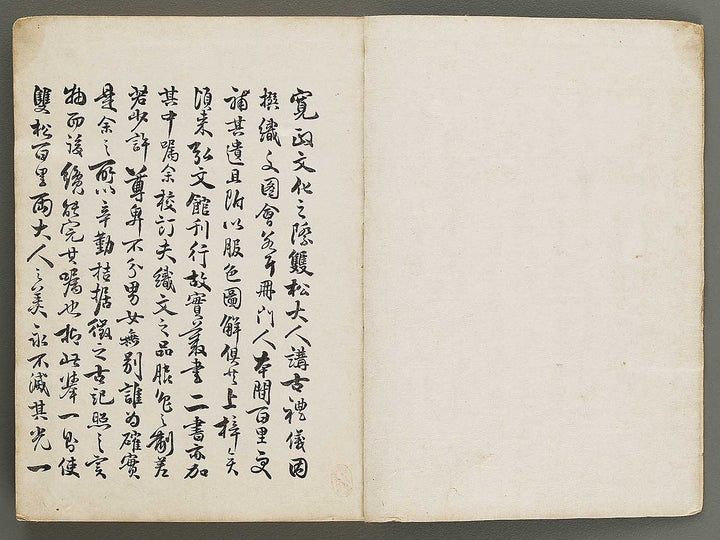 寛政文化之際雙松大人講古禮儀因
撰織文圖會若干冊門人本間百里更
補其遺且附以服色圖解俱共上梓矣
頃来弘文館刊行故實叢書二書亦加
其中嘱余校訂夫織文之品服色之制若
老少許尊卑不分男女無別誰為確實
是余之所以辛勤拮据徴之古記照之實
物而後纔能完其嘱也抑此挙一則使
雙松百里両大人之美永不滅其光一